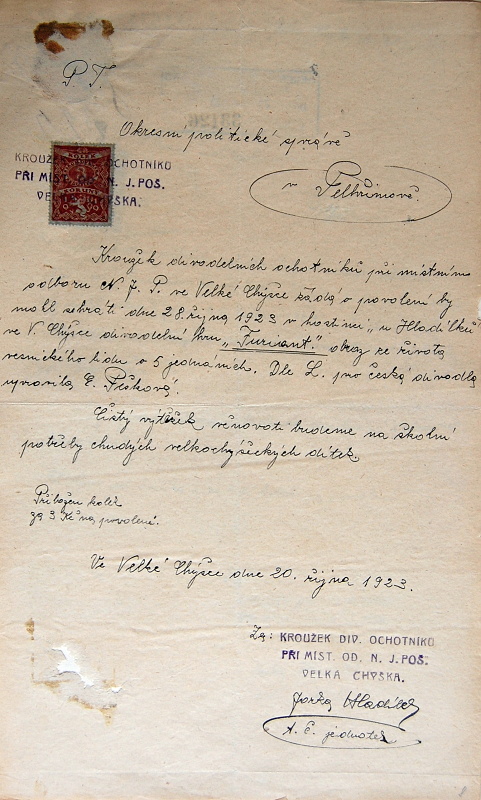 P. T.
Okresní politické správě
v Pelhřimově.
KROUŽEK DIV. OCHOTNIKŮ
PŘI MÍST. OD. N. J. POŠ.
VELKÁ CHÝŠKA.
KOLEK
KORUNA
Kroužek divadelních ochotníků při místním
odboru N. J. P. ve Velké Chýšce žádá o povolení by
mohl sehráti dne 28. října 1923 v hostinci „u Hladílků“
ve V. Chýšce divadelní hru „Furiant.“ obraz ze života
vesnického lidu o 5 jednáních. Dle L. pro česká divadla
upravila E. Pešková.
Čistý výtěžek věnovati budeme na školní
potřeby chudých velkochýšeckých dítek.
Přiložen kolek
za 3 Kč na povolení.
Ve Velké Chýšce dne 20. října 1923.
Za: KROUŽEK DIV. OCHOTNIKŮ
PŘI MÍST. OD. N. J. POŠ.
VELKÁ CHÝŠKA.
Hladílek
t. č. jednatel